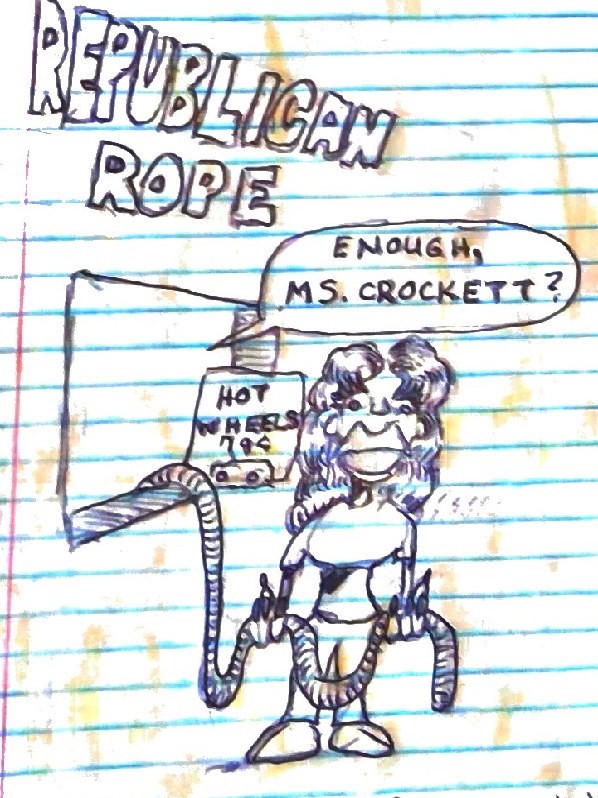 REPUBLICAN
ROPE
ENOUGH,
MS. CROCKETT?
HOT
WHEELS
79¢